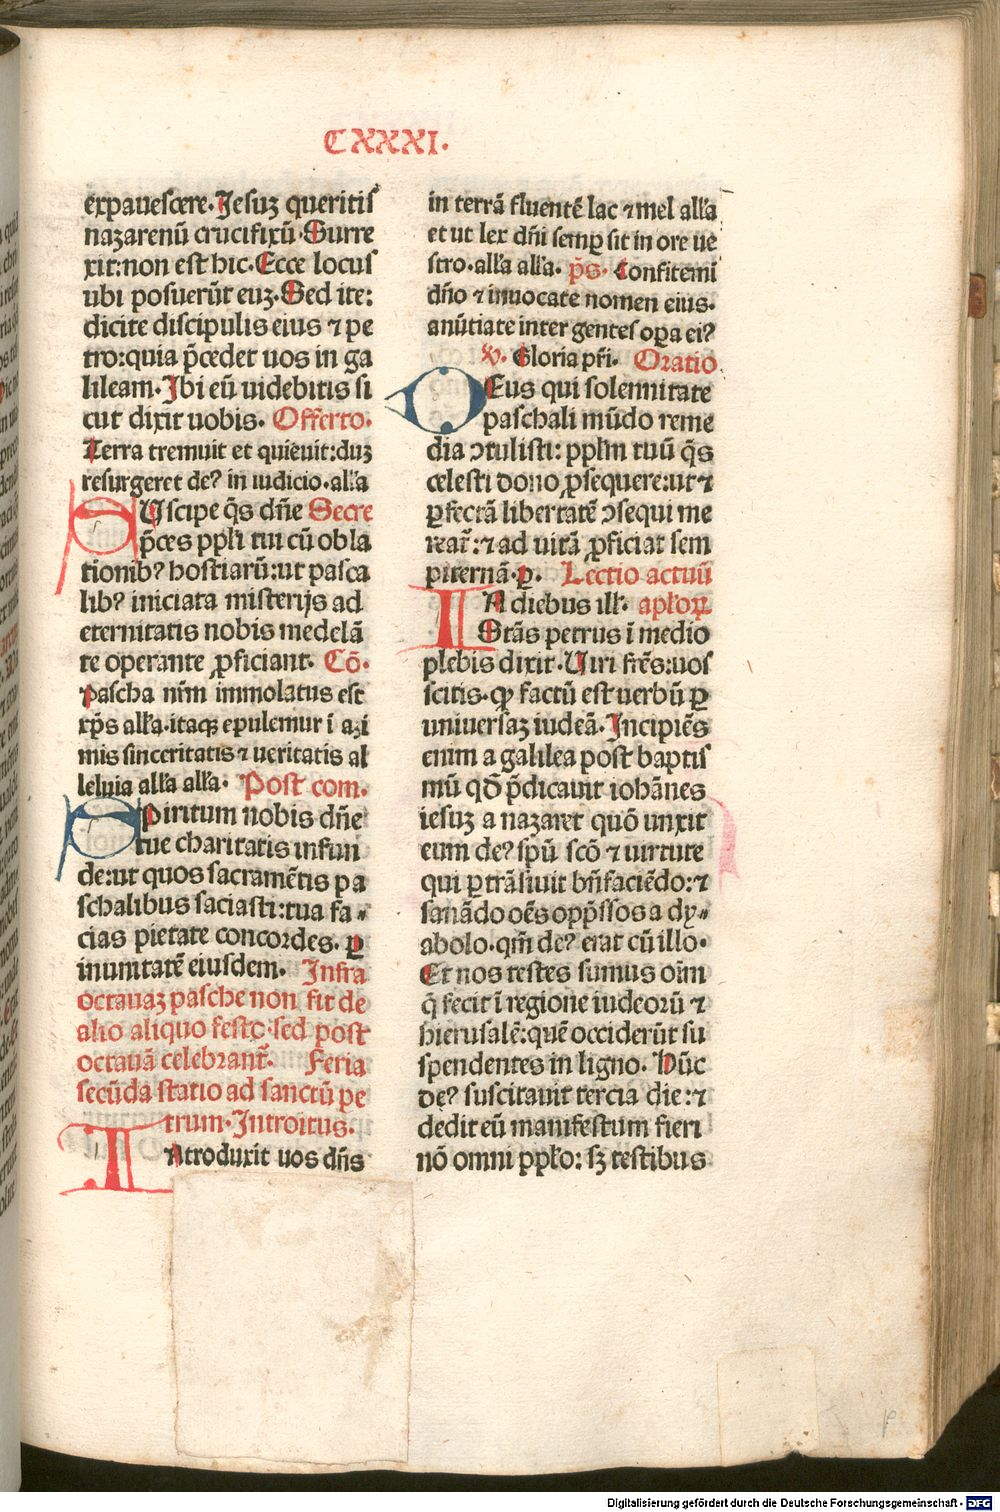 CXXXI.
expauescere. Jesuz queritis
nazarenū crucifixū. Surre
xit: non est hic. Ecce locus
ubi posuerūt euz. Sed ite:
dicite discipulis eius ⁊ pe
tro: quia p̄cedet uos in ga
lileam. Ibi eū uidebitis si
cut dixit uobis. Offerto.
Terra tremuit et quieuit: duz
resurgeret deꝰ in iudicio. alľa
SUscipe q̄s dn̄e Secre
p̄ces ppľi tui cū obla
tionibꝰ hostiarū: ut pasca
libꝰ iniciata misterijs ad
eternitatis nobis medelā
te operante ꝓficiant. Cō.
Pascha nr̄m immolatus est
xp̄s alľa. itaqꝫ epulemur ī azi
mis sinceritatis ⁊ ueritatis al
leluia alľa alľa. Post com.
SPiritum nobis dn̄e
tue charitatis infun
de: ut quos sacramētis pa
schalibus saciasti: tua fa⸗
cias pietate concordes. ꝑ
inunitatē eiusdem. Infra
octauaz pasche non fit de
alio aliquo festo. sed post
octauā celebrant̄. Feria
secūda statio ad sanctū pe
trum. Introitus.
INtroduxit uos dn̄s
in terrā fluentē lac ⁊ mel alľa
et ut lex dn̄i semꝑ sit in ore ue
stro. alľa alľa. p̄s. Confitemi
dn̄o ⁊ inuocate nomen eius.
anūtiate inter gentes oꝑa eiꝰ
℣. Gloria pr̄i. Oratio
DEus qui solennitate
paschali mūdo reme
dia ↄtulisti: ppľm tuū q̄s
celesti dono ꝓsequere: ut ⁊
ꝑfectā libertatē ↄsequi me
reat̄: ⁊ ad uitā ꝓficiat sem
piternā. ꝑ. Lectio actuū
IN diebus ilľ. apľoꝝ
Stās petrus ī medio
plebis dixit. Uiri fr̄es: uos
scitis. ꝙ factū est uerbū ꝑ
uniuersaz iudeā. Incipiēs
enim a galilea post baptis
mū qd̄ p̄dicauit iohānes
iesuz a nazaret quō unxit
eum deꝰ spū scō ⁊ uirtute
qui ꝑtrāsiuit bn̄faciēdo: ⁊
sanādo oēs opp̄ssos a dy⸗
abolo. qm̄ deꝰ erat cū illo.
Et nos testes sumus oīm
q̄ fecit ī regione iudeorū ⁊
hierusalē: quē occiderūt su
spendentes in ligno. Hūc
deꝰ suscitauit tercia die: ⁊
dedit eū manifestum fieri
nō omni ppľo: sꝫ testibus
Digitalisierung gefördert durch die Deutsche Forschungsgemeinschaft - DFG